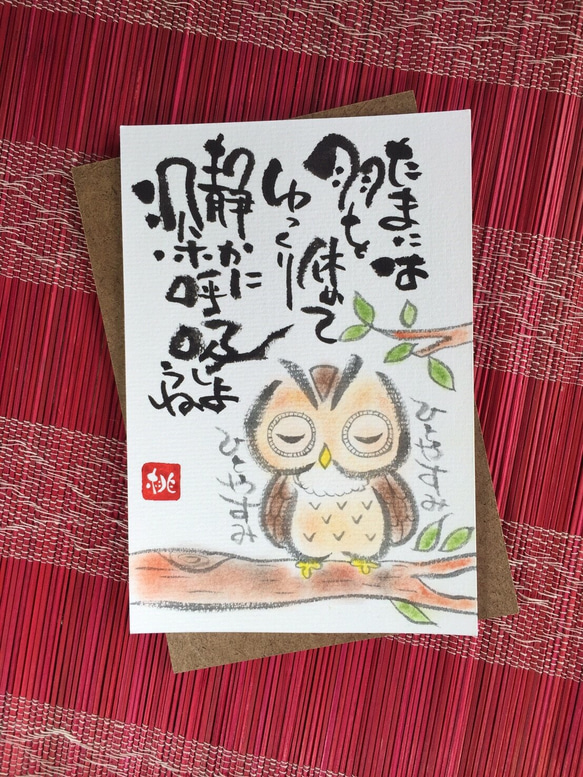 たまには
羽を休めて
ゆっくり
静かに
深呼吸しよ
うね
ひとやすみ
ひとやすみ
桃